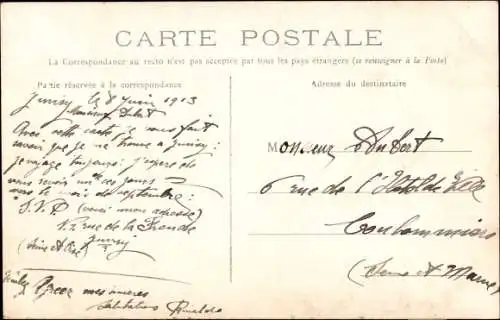 CARTE POSTALE
La Correspondance au recto n'est pas acceptée par tous les pays étrangers (se renseigner à la Poste)
Partie réservée à la correspondance
Adresse du destinataire
Juvisy le 8 Juin 1913
Monsieur Dubert
Avec cette carte je vous fait
savoir que je me trouve a Juvisy:
je voyage toujours: j'espere de
vous revoir un de ces jours
vers le mois de septembre:
S.V.P. (voici mon adresse)
12 rue de la
(Seine et Oise) Juvisy
Agreer mes sinceres
Salutations
Monsieur Dubert
6 rue de l'Hotel de Ville
Coulommiers
(Seine et Marne)